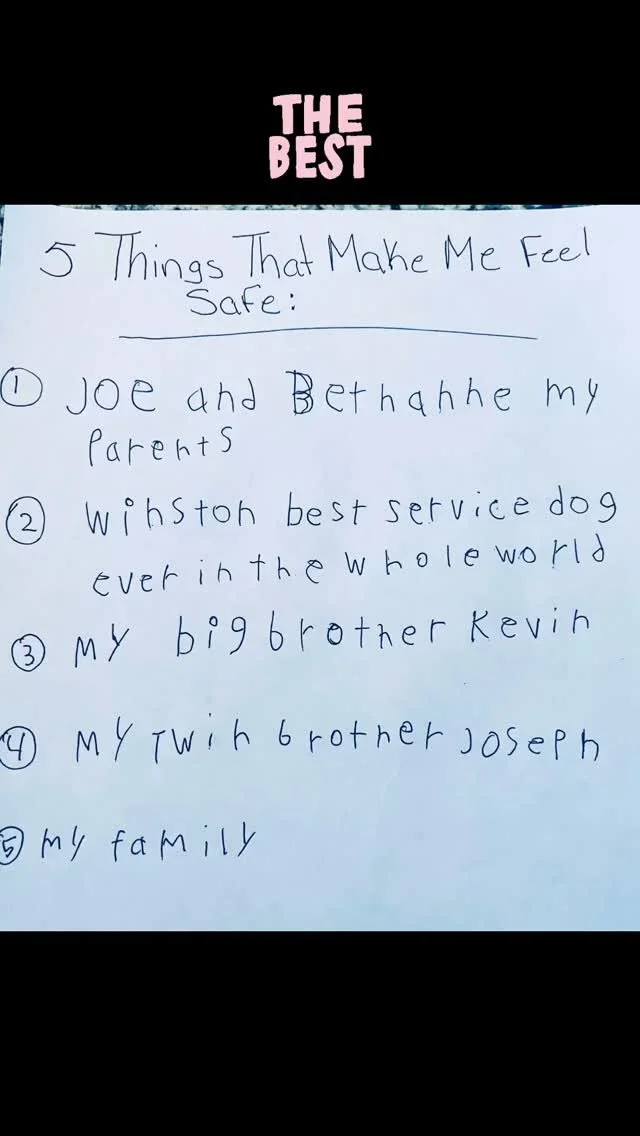 THE
BEST
5 Things That Make Me Feel
Safe:
① Joe and Bethanne my
parents
② Winston best service dog
ever in the whole world
③ My big brother Kevin
④ My Twin brother Joseph
⑤ my family